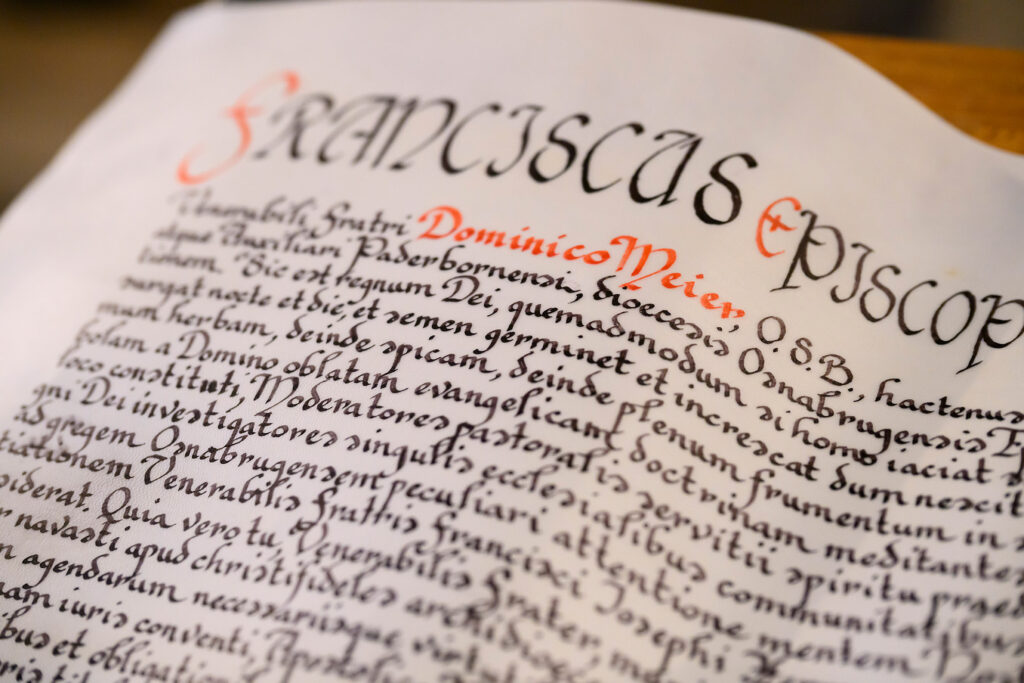 FRANCISCUS EPISCOP
Venerabili Fratri Dominico Meier, O.S.B., hactenus
atque Auxiliari Paderbornensi, dioecesis Osnabrugensis Ep
tionem. "Sic est regnum Dei, quemadmodum si homo iaciat s
surgat nocte et die, et semen germinet et increscat dum nescit
mum herbam, deinde spicam, deinde plenum frumentum in s
bolam a Domino oblatam evangelicam doctrinam meditantes
loco constituti, Moderatores pastoralis servitii spiritu praed
gni Dei investigatores singulis ecclesialibus communitatibus
ad gregem Osnabrugensem peculiari attentione mentem
tiationem Venerabilis Fratris Francisci Iosephi
siderat. Quia vero tu, Venerabilis Frater,
r navasti apud christifideles archidioec
n agendarum necessariisque virt
nam iuris conventi, Apostoli
ibus et obligation